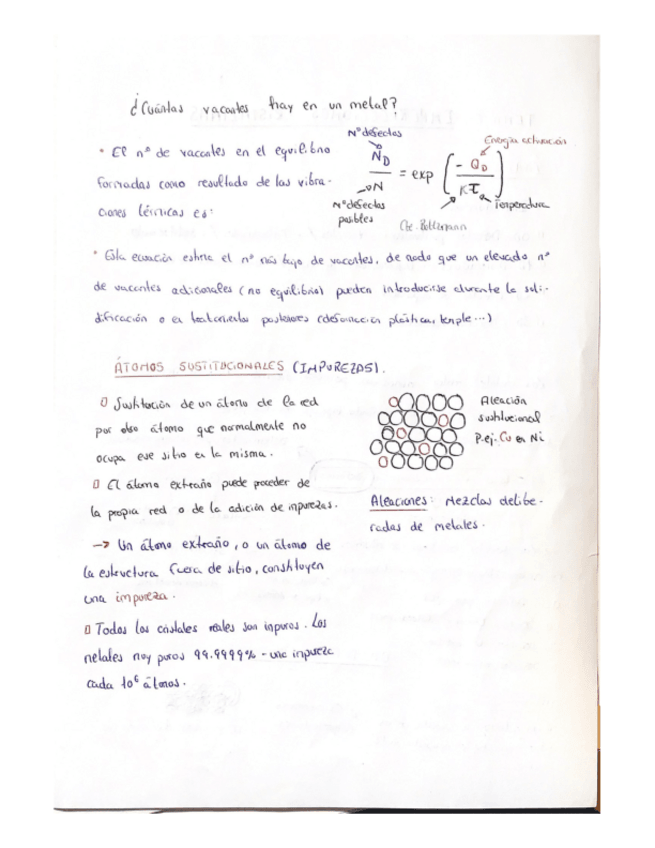 ¿Cuántas vacantes hay en un metal?
• El nº de vacantes en el equilibrio
formadas como resultado de las vibra-
ciones térmicas es:
Nº defectos
N_D / N = exp ( - Q_D / KT )
Nº defectos
posibles
Energía activación
Cte. Boltzmann
Temperatura
• Esta ecuación estima el nº más bajo de vacantes, de modo que un elevado nº
de vacantes adicionales (no equilibrio) pueden introducirse durante la soli-
dificación o en tratamientos posteriores (deformación plástica, temple...)
ÁTOMOS SUSTITUCIONALES (IMPUREZAS).
Sustitución de un átomo de la red
por otro átomo que normalmente no
ocupa ese sitio en la misma.
El átomo extraño puede proceder de
la propia red o de la adición de impurezas.
→ Un átomo extraño, o un átomo de
la estructura fuera de sitio, constituyen
una impureza.
Todos los cristales reales son impuros. Los
metales muy puros 99.9999% - una impureza
cada 10⁶ átomos.
Aleación
sustitucional
P.ej. Cu en Ni
Aleaciones: Mezclas delibe-
radas de metales.